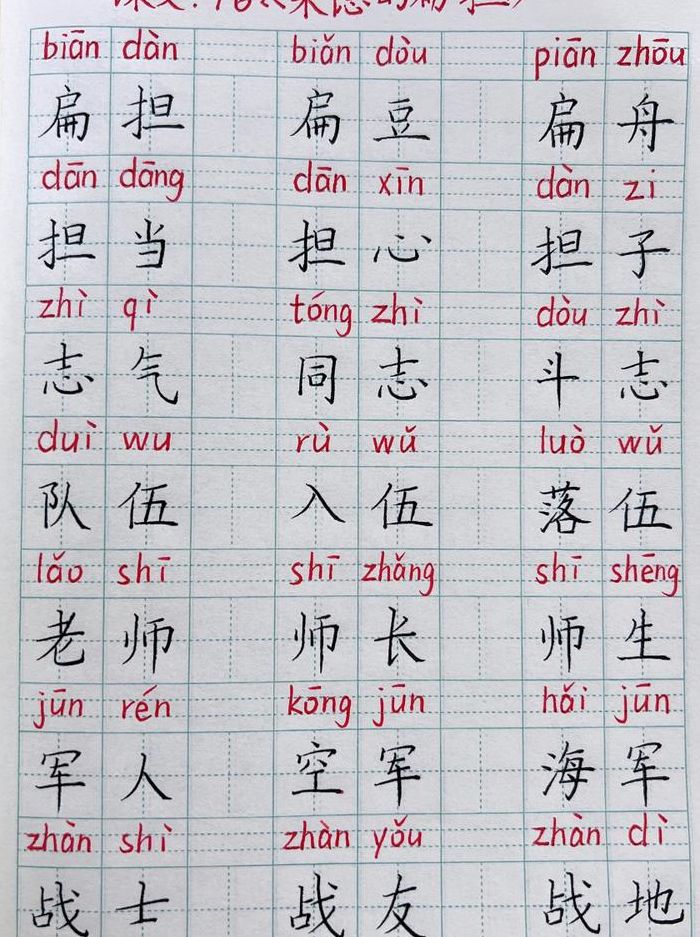 课文:16《朱德的扁担》
biān dàn biǎn dòu piān zhōu
扁担 扁豆 扁舟
dān dāng dān xīn dàn zi
担当 担心 担子
zhì qì tóng zhì dòu zhì
志气 同志 斗志
duì wu rù wǔ luò wǔ
队伍 入伍 落伍
lǎo shī shī zhǎng shī shēng
老师 师长 师生
jūn rén kōng jūn hǎi jūn
军人 空军 海军
zhàn shì zhàn yǒu zhàn dì
战士 战友 战地